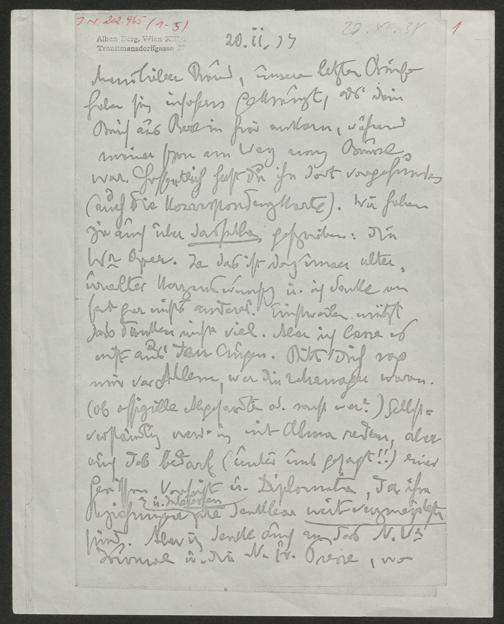 J.N. 202.965 (1-5)
1
Alban Berg, Wien XIII/
Trauttmansdorffgasse 27
20. II. 34
Mein lieber Freund, unsere letzten Briefe
haben sich insofern gekreuzt, als Dein
Brief aus hier ankam, während
meiner schon am Weg nach Brüssel
war. Hoffentlich hast Du ihn dort vorgefunden
(auch die Korrespondenzkarte). Wir haben
ja auch über dasselbe geschrieben: Die
Wr Oper. Ja das ist doch unser alter,
uralter Herzenswunsch u. ich denke an
fast gar nichts anderes. Einstweilen nützt
das Denken nicht viel. Aber ich lasse es
nicht aus den Augen. Bitte Dich sag
mir vor Allem, wer die waren.
(ob offizielle Abgesandte od. sonst wer?) Selbst-
verständlich werde ich mit Alma reden, aber
auch das bedarf (unter uns gesagt!!) einer
gewissen Vorsicht u. Diplomatie, da ihre
u.
Beziehungen denkbar mit verknüpft
sind. Aber ich denke auch an das N. Wr
Journal u. die N. fr. Presse, wo